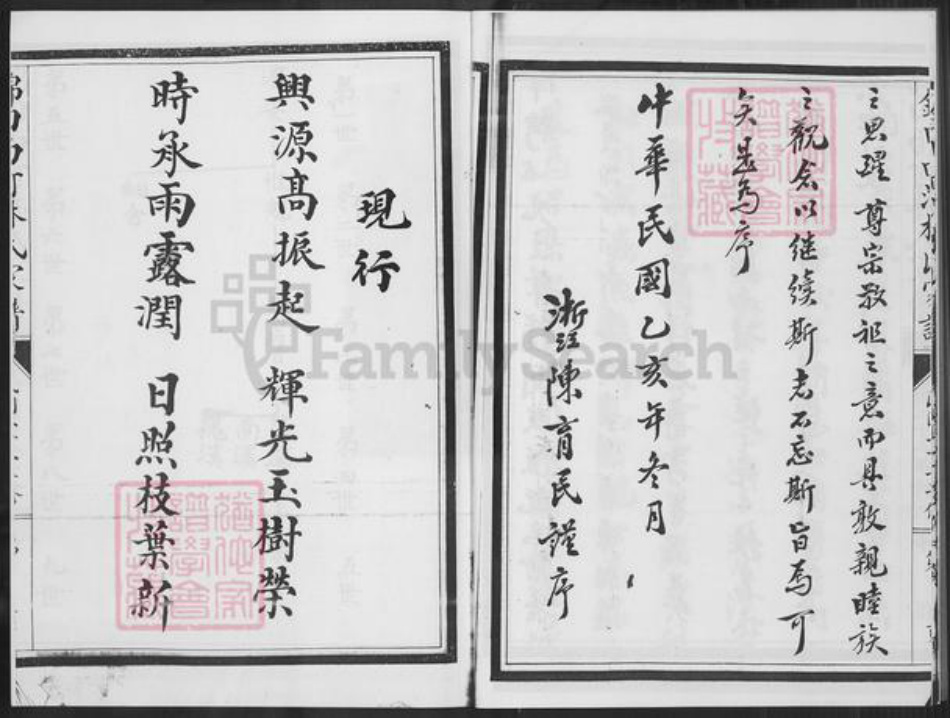 之思躍尊宗敬祖之意而具敦親睦族
之觀念以继续斯志不忘斯旨焉可
矣是為序
中華民國乙亥年冬月
淅江陳育民謹序
現行
興源高振起 輝光玉樹榮
時承雨露潤 日照枝葉新
FamilySearch